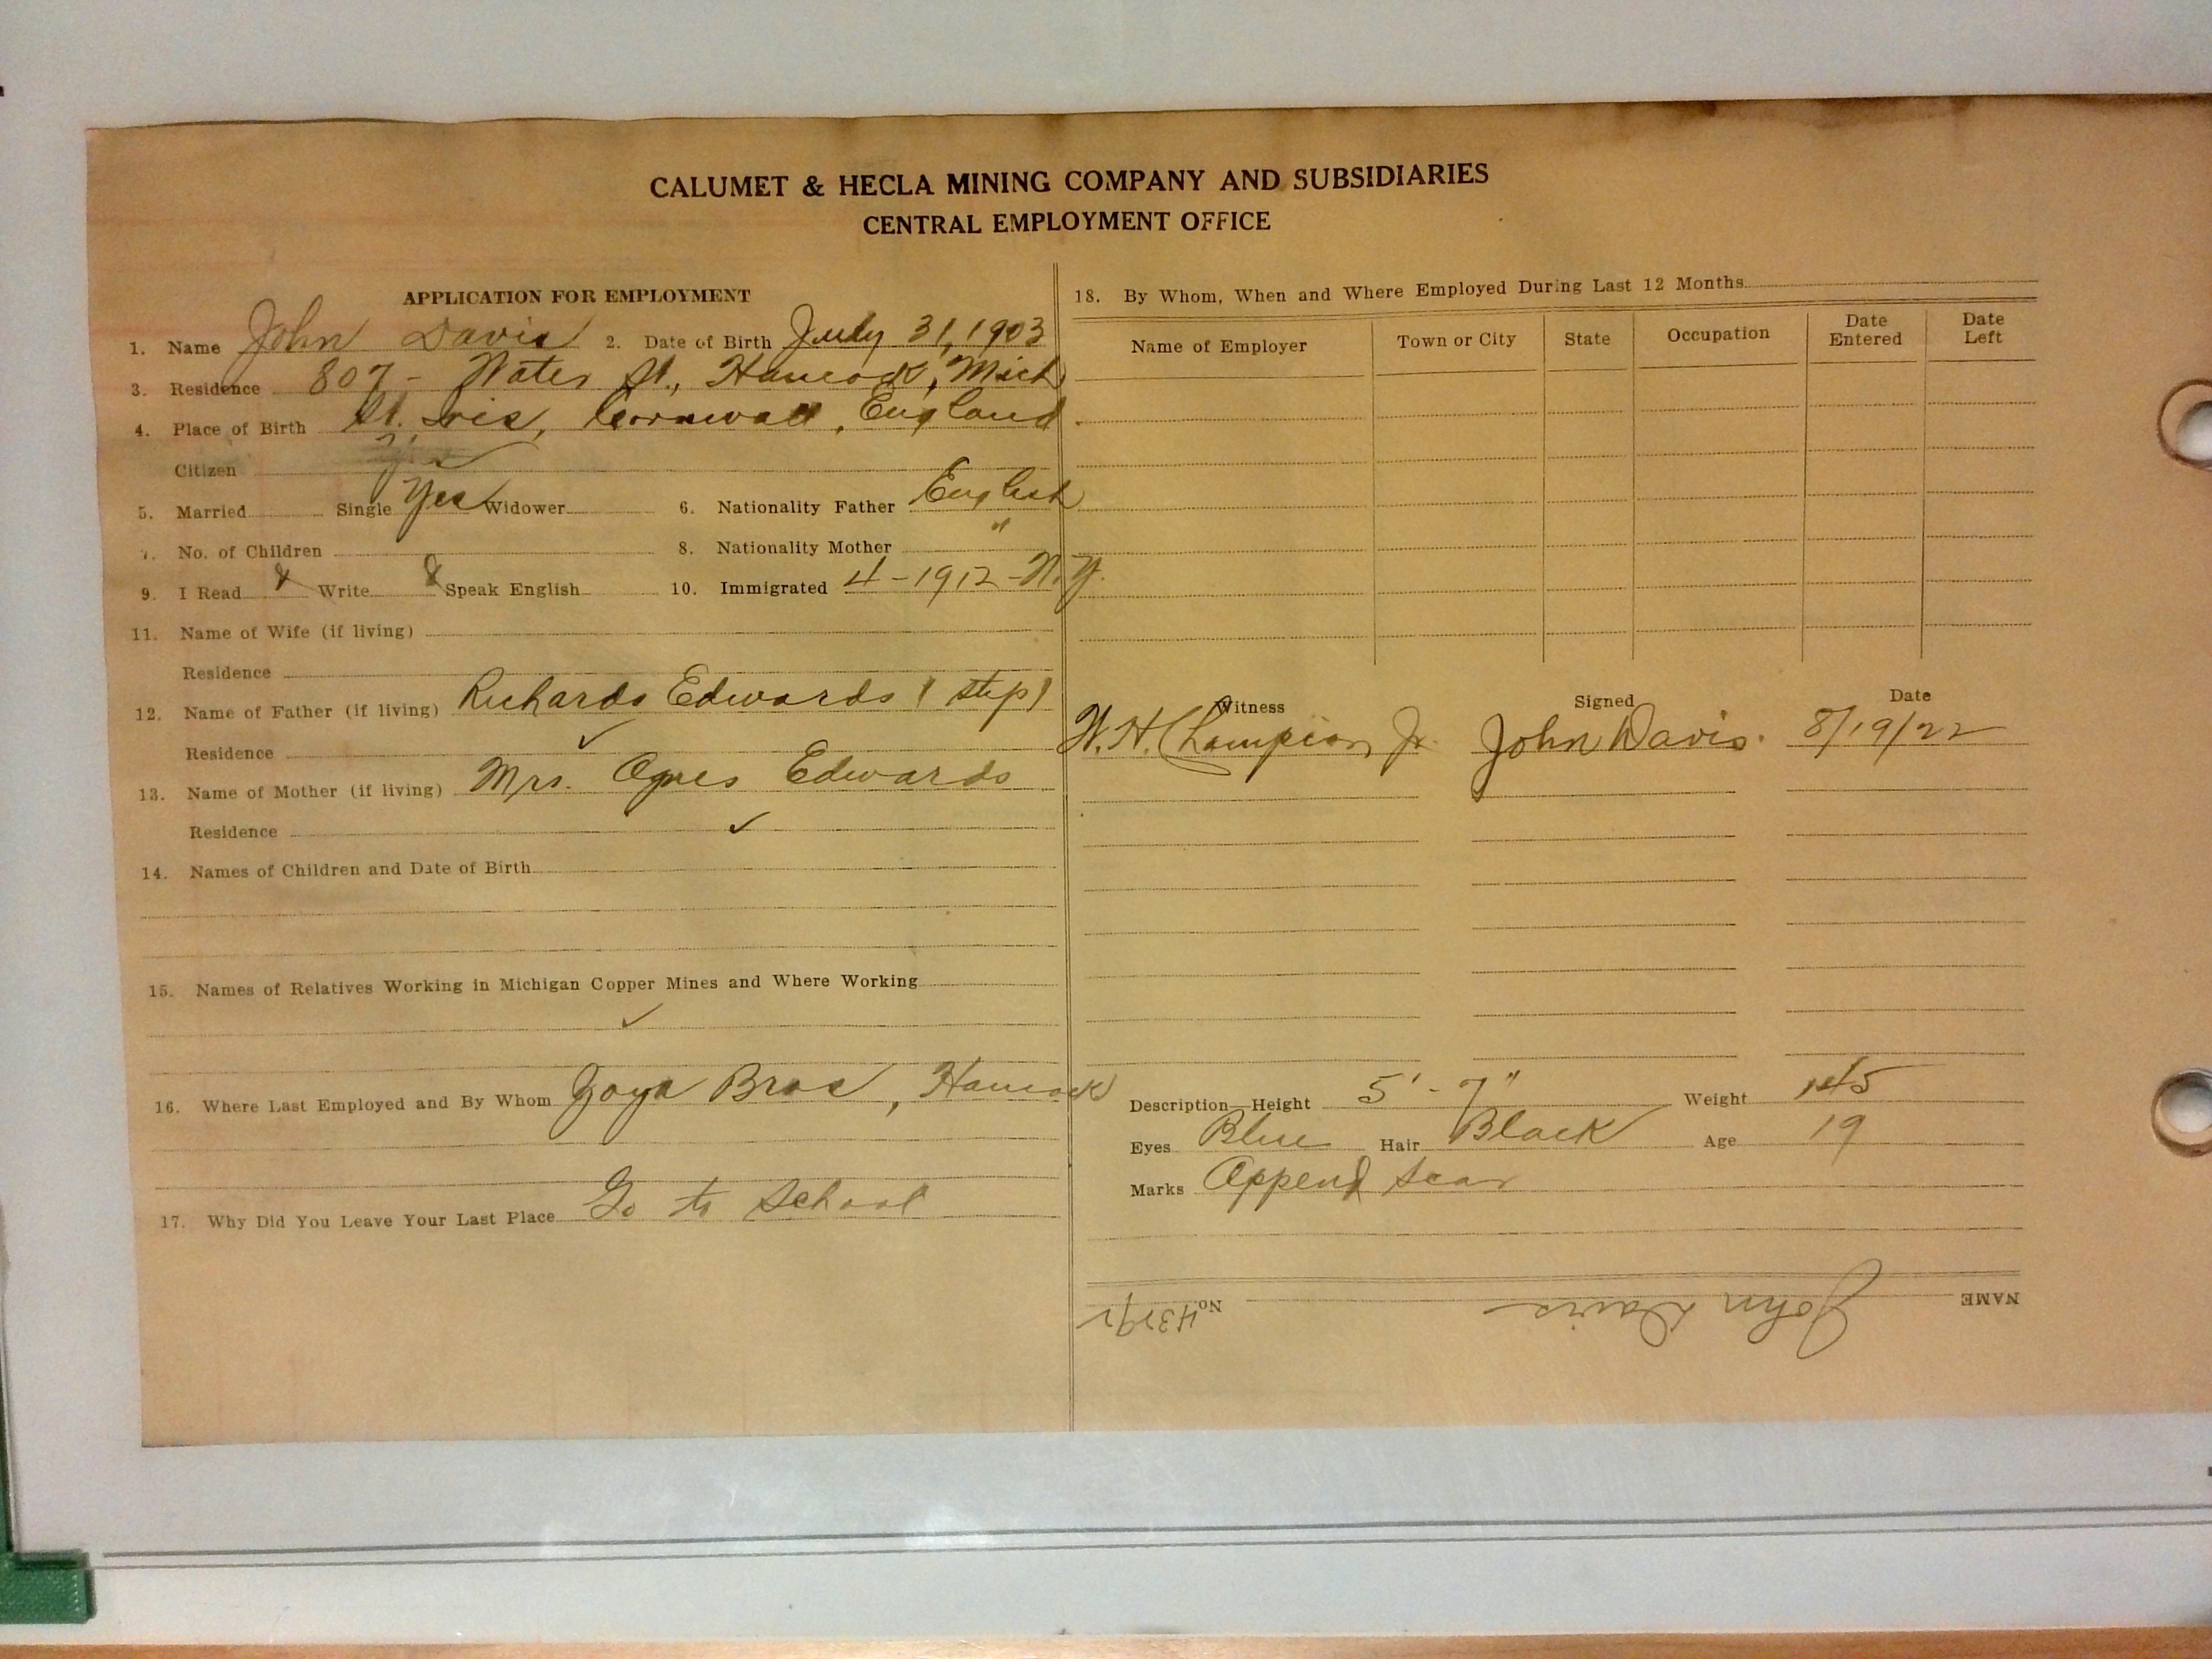 CALUMET & HECLA MINING COMPANY AND SUBSIDIARIES
CENTRAL EMPLOYMENT OFFICE
APPLICATION FOR EMPLOYMENT
1. Name John Davis 2. Date of Birth July 31, 1903
3. Residence 807 - Water St., Hancock, Mich
4. Place of Birth St. Ives, Cornwall, England
Citizen
5. Married Single Yes Widower 6. Nationality Father English
7. No. of Children 8. Nationality Mother "
9. I Read Write Speak English 10. Immigrated 4 - 1912 - N.Y.
11. Name of Wife (if living)
Residence
12. Name of Father (if living) Richards Edwards (step)
Residence ✓
13. Name of Mother (if living) Mrs. Agnes Edwards
Residence ✓
14. Names of Children and Date of Birth
15. Names of Relatives Working in Michigan Copper Mines and Where Working
✓
16. Where Last Employed and By Whom Bros, Hancock
17. Why Did You Leave Your Last Place Go to School
18. By Whom, When and Where Employed During Last 12 Months
Name of Employer Town or City State Occupation Date Entered Date Left
Witness Signed Date
W. H. Champion Jr. John Davis. 8/19/22
Description—Height 5' - 7" Weight 145
Eyes Blue Hair Black Age 19
Marks Append scar
NAME John Davis No.